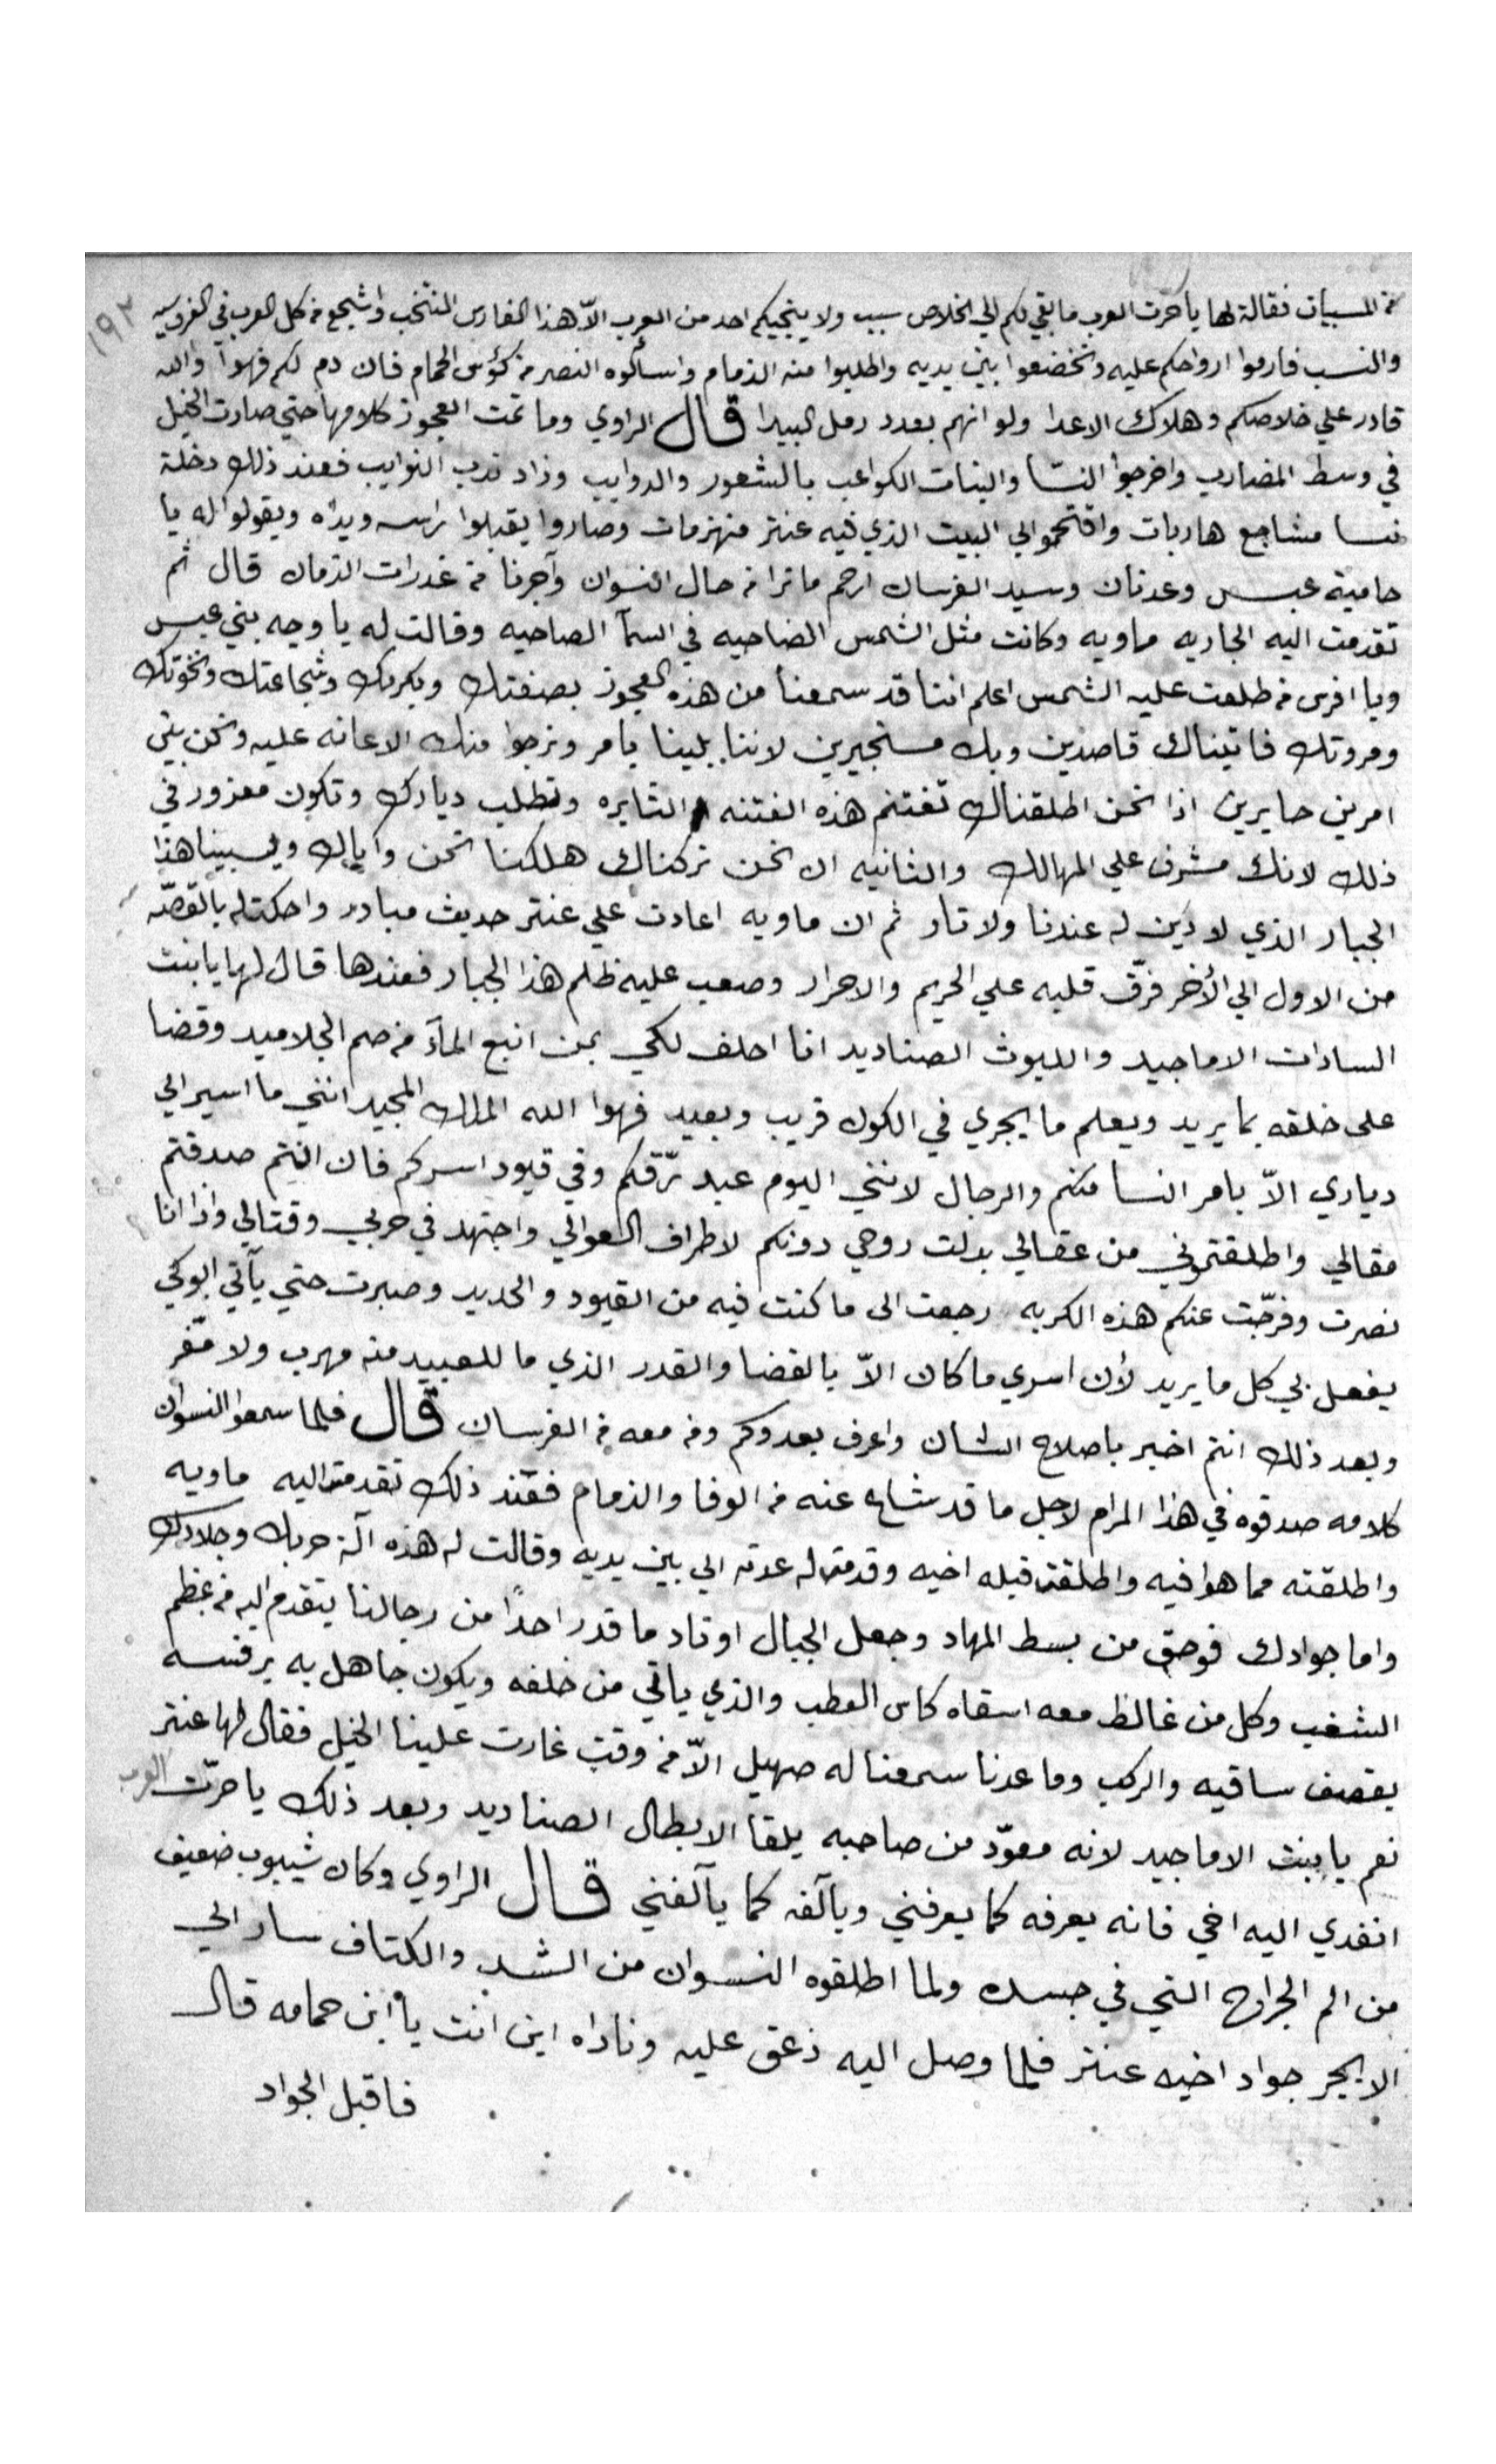 ١٩٢
من المسبيات فقالة لها يا حرّت العرب ما بقي لكم الي الخلاص سبب ولا ينجيكم احد من العرب الاّ هذا الفارس المنتخب واشجع من كل العرب في الفروسيه
والنسب فارموا ارواحكم عليه وتخضعوا بين يديه واطلبوا منه الذمام واسألوه النصر من كؤس الحمام فان دم لكم فهوا والله
قادر علي خلاصكم وهلاك الاعدا ولو انهم بعدد رمل البيدا قال الراوي وما تمت العجوز كلامها حتي صارت الخيل
في وسط المضارب واخرجوا النسا والبنات الكواعب بالشعور والدوايب وزاد ندب النوايب فعند ذلك دخلة
نسا مشاجع هاربات واقتحموا الي البيت الذي فيه عنتر منهزمات وصاروا يقبلوا راسه ويداه ويقولوا له يا
حامية عبس وعدنان وسيد الفرسان ارحم ما ترا من حال النسوان وآجرنا من غدرات الزمان قال ثم
تقدمت اليه الجاريه ماويه وكانت مثل الشمس الضاحيه في السمآ الصاحيه وقالت له يا وجه بني عبس
ويا افرس من طلعت عليه الشمس اعلم اننا قد سمعنا من هذه العجوز بصفتك وبكربك وشجاعتك ونخوتك
ومروتك فاتيناك قاصدين وبك مستجيرين لاننا بلينا بامر ونرجوا منك الاعانه عليه ونحن بين
امرين حايرين اذا نحن اطلقناك تغتنم هذه الفتنه الثايره وتطلب ديارك وتكون معزور في
ذلك لانك مشرف علي المهالك والثانيه ان نحن تركناك هلكنا نحن واياك ويسبينا هذا
الجبار الذي لا دين له عندنا ولا تار ثم ان ماويه اعادت علي عنتر حديث مبادر واحكت له بالقصّه
من الاول الي الأخر فرقّ قلبه علي الحريم والاحرار وصعب عليه ظلم هذا الجبار فعندها قال لها يا بنت
السادات الاماجيد والليوث الصناديد انا احلف لكي بمن انبع المآء من صم الجلاميد وقضا
على خلقه بما يريد ويعلم ما يجري في الكون قريب وبعيد فهوا الله الملك المجيد انني ما اسير الي
دياري الاّ بامر النسا منكم والرجال لانني اليوم عبد رقّكم وفي قيود اسركم فان انتم صدقتم
مقالي واطلقتموني من عقالي بدلت روحي دونكم لاطراف العوالي واجتهد في حربي وقتالي واذا انا
نصرت وفرجّت عنكم هذه الكربه رجعت الى ما كنت فيه من القيود والحديد وصبرت حتي يآتي ابوكي
يفعل بي كل ما يريد لأن اسري ما كان الاّ بالقضا والقدر الذي ما للعبيد منه مهرب ولا مفّر
وبعد ذلك انتم اخبر باصلاح الشان واعرف بعدوكم ومن معه من الفرسان قال فلما سمعوا النسوان
كلامه صدقوه في هذا المرام لاجل ما قد شاع عنه من الوفا والذمام فعند ذلك تقدمت اليه ماويه
واطلقته مما هوا فيه واطلقت قبله اخيه وقدمت له عدته الي بين يديه وقالت له هذه آلة حربك وجلادك
واما جوادك فوحق من بسط المهاد وجعل الجبال اوتاد ما قدر احدًا من رجالنا يتقدم اليه من عظم
الشغب وكل من غالظ معه اسقاه كاس العطب والذي ياتي من خلفه ويكون جاهل به يرفسه
يقصف ساقيه والركب وما عدنا سمعنا له صهيل الاّ من وقت غارت علينا الخيل فقال لها عنتر
نعم يا بنت الاماجيد لانه معوّد من صاحبه يلقا الابطال الصناديد وبعد ذلك يا حرّت العرب
انفدي اليه اخي فانه يعرفه كما يعرفني ويآلفه كما يآلفني قال الراوي وكان شيبوب ضعيف
من الم الجراح التي في جسده ولما اطلقوه النسوان من الشد والكتاف سار الي
الابجر جواد اخيه عنتر فلما وصل اليه زعق عليه وناداه اين انت يا ابن حمامه قال
فاقبل الجواد